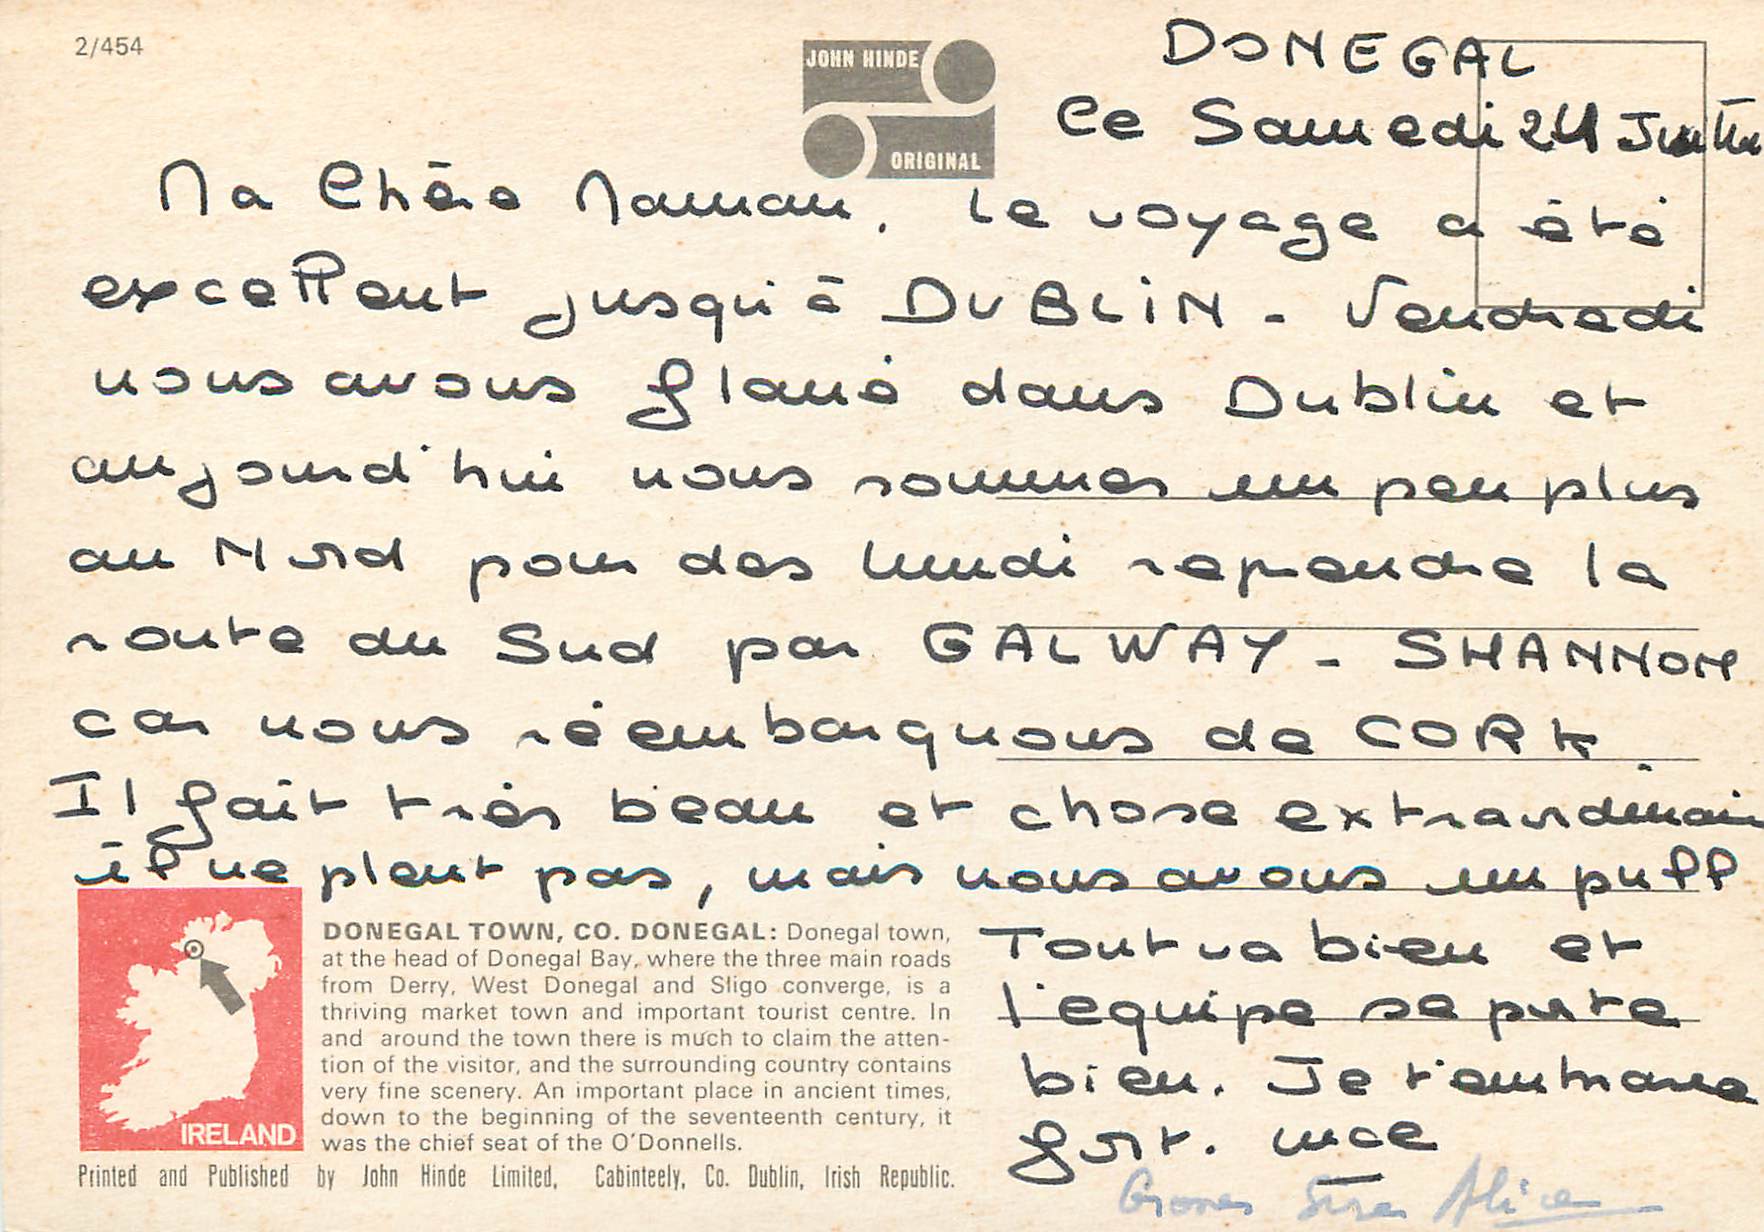 2/454
JOHN HINDE
ORIGINAL
DONEGAL
Ce Samedi 24 Juillet
Ma Chère Maman. Le voyage a été
excellent jusqu'à DUBLIN - Vendredi
nous avons flané dans Dublin et
aujourd'hui nous sommes un peu plus
au Nord pour dès lundi reprendre la
route du Sud par GALWAY - SHANNON
car nous réembarquons de CORK.
Il fait très beau et chose extraordinaire
il ne pleut pas, mais nous avons un pull
Tout va bien et
l'equipe se porte
bien. Je t'embrasse
fort.
Alice
DONEGAL TOWN, CO. DONEGAL: Donegal town,
at the head of Donegal Bay, where the three main roads
from Derry, West Donegal and Sligo converge, is a
thriving market town and important tourist centre. In
and around the town there is much to claim the atten-
tion of the visitor, and the surrounding country contains
very fine scenery. An important place in ancient times,
down to the beginning of the seventeenth century, it
was the chief seat of the O'Donnells.
IRELAND
Printed and Published by John Hinde Limited, Cabinteely, Co. Dublin, Irish Republic.